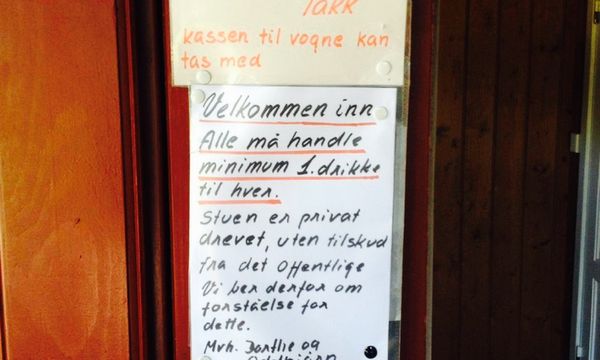 Takk
kassen til vogne kan
tas med
Velkommen inn
Alle må handle
minimum 1. drikke
til hver.
Stuen er privat
drevet, uten tilskud
fra det offentlige
Vi ber derfor om
forståelse for
dette.
Mvh. Dorthe og